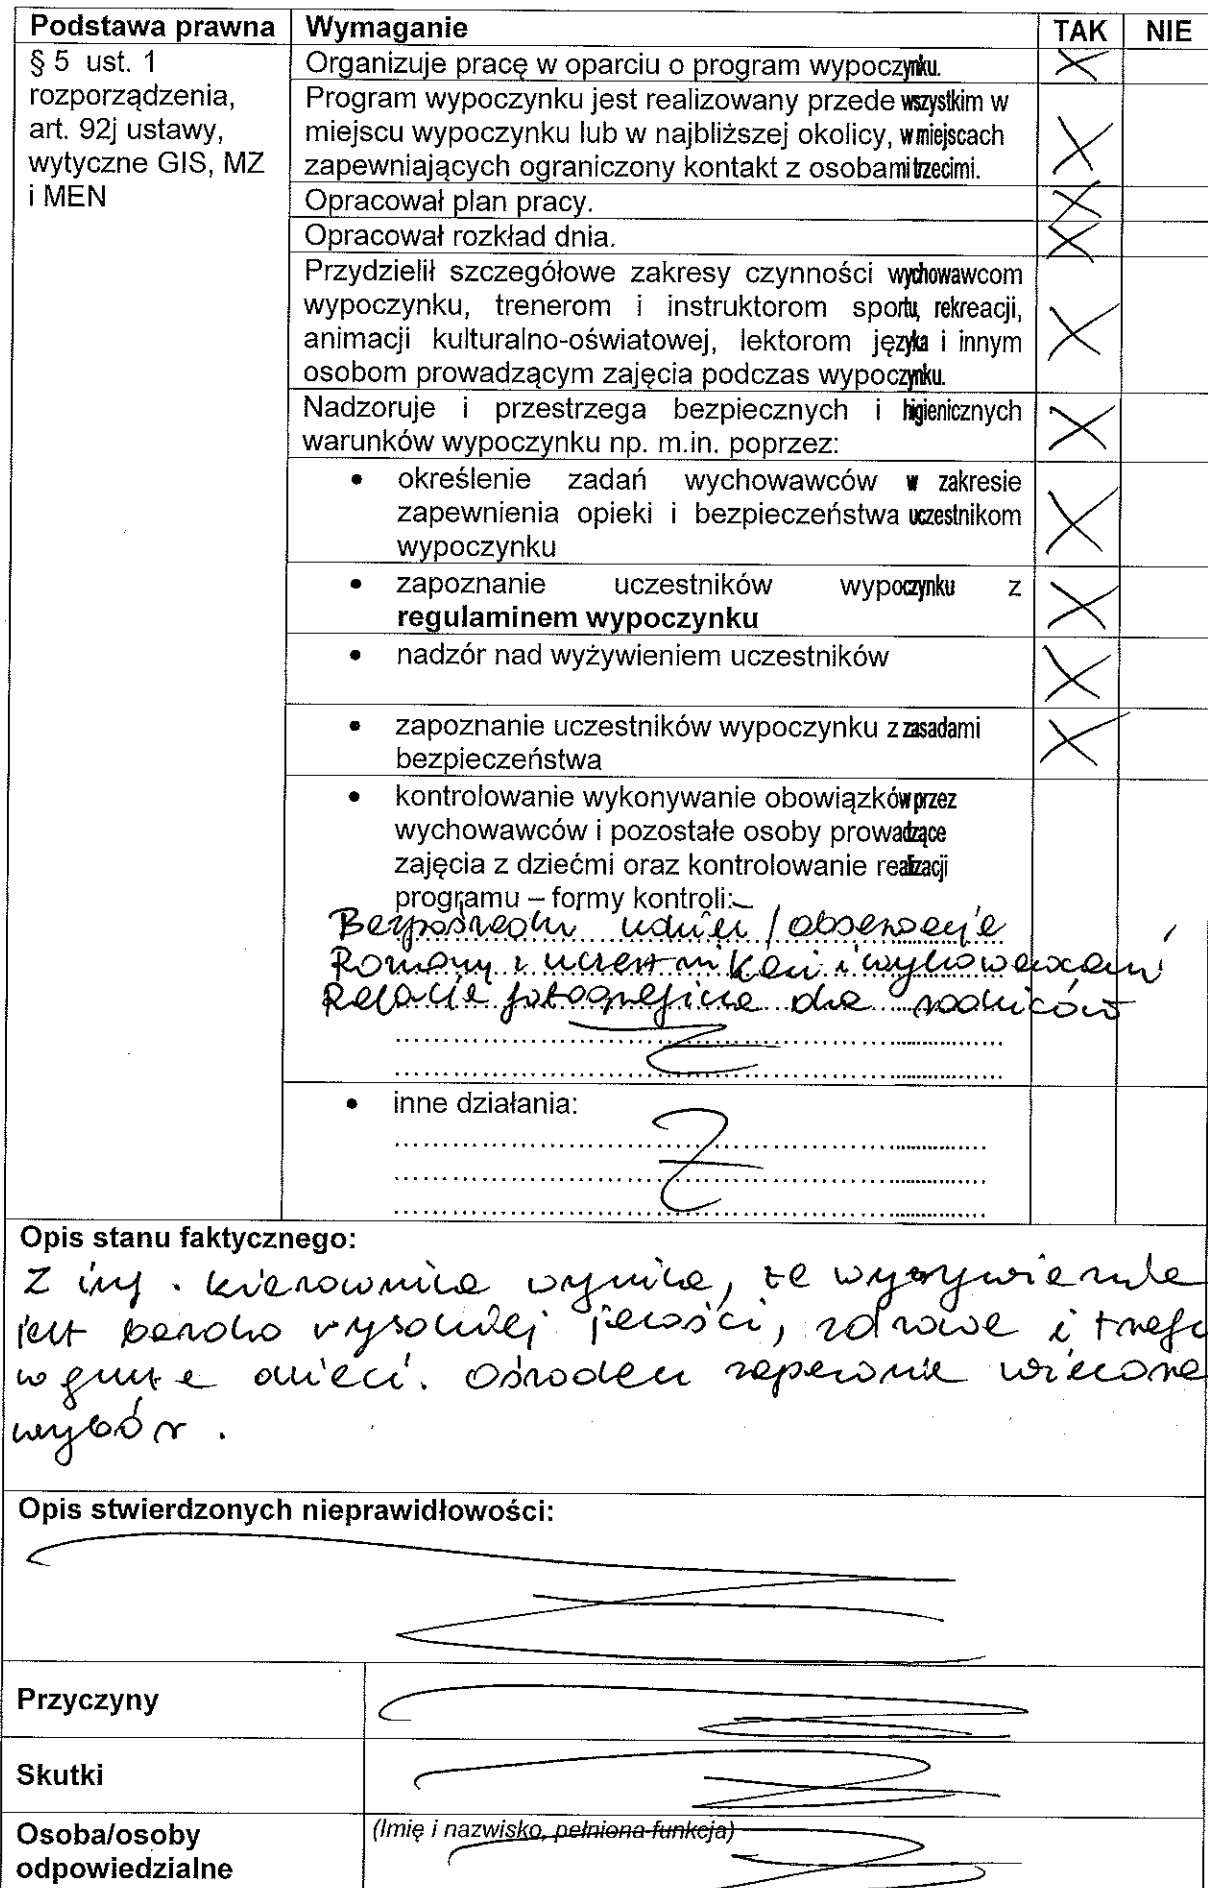 Podstawa prawna Wymaganie TAK NIE
§ 5 ust. 1
rozporządzenia,
art. 92j ustawy,
wytyczne GIS, MZ
i MEN
Organizuje pracę w oparciu o program wypoczynku.
Program wypoczynku jest realizowany przede wszystkim w
miejscu wypoczynku lub w najbliższej okolicy, w miejscach
zapewniających ograniczony kontakt z osobami trzecimi.
Opracował plan pracy.
Opracował rozkład dnia.
Przydzielił szczegółowe zakresy czynności wychowawcom
wypoczynku, trenerom i instruktorom sportu, rekreacji,
animacji kulturalno-oświatowej, lektorom języka i innym
osobom prowadzącym zajęcia podczas wypoczynku.
Nadzoruje i przestrzega bezpiecznych i higienicznych
warunków wypoczynku np. m.in. poprzez:
• określenie zadań wychowawców w zakresie
zapewnienia opieki i bezpieczeństwa uczestnikom
wypoczynku
• zapoznanie uczestników wypoczynku z
regulaminem wypoczynku
• nadzór nad wyżywieniem uczestników
• zapoznanie uczestników wypoczynku z zasadami
bezpieczeństwa
• kontrolowanie wykonywanie obowiązków przez
wychowawców i pozostałe osoby prowadzące
zajęcia z dziećmi oraz kontrolowanie realizacji
programu – formy kontroli:
Bezpośredni udział / obserwacje
Rozmowy z uczestnikami i wychowawcami
Relacje fotograficzne dla rodziców
• inne działania:
Opis stanu faktycznego:
Z inf. kierownika wynika, że wyżywienie
jest bardzo wysokiej jakości, zdrowe i trafia
w gusta dzieci. Ośrodek zapewnia
wybór.
Opis stwierdzonych nieprawidłowości:
Przyczyny
Skutki
Osoba/osoby
odpowiedzialne
(Imię i nazwisko, pełniona funkcja)